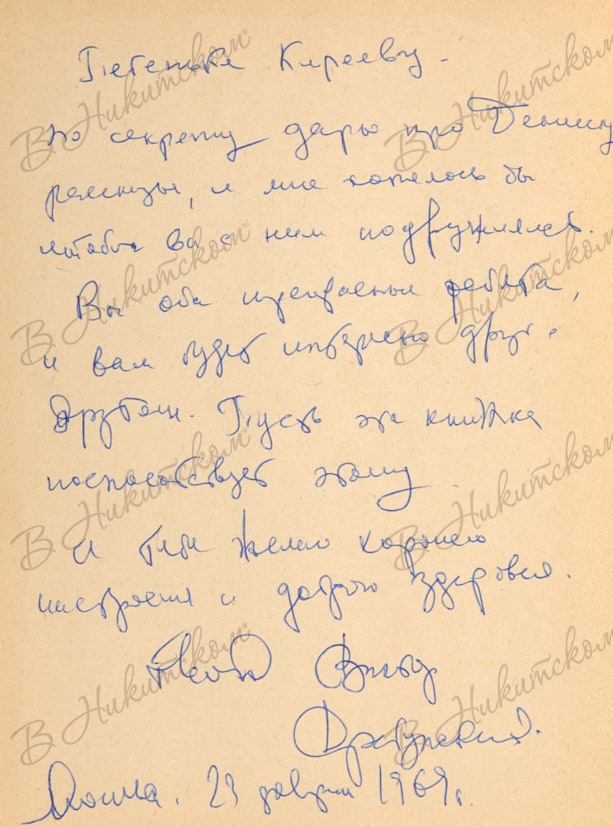 Петеньке Кирееву.
по секрету дарю про Дениску
рассказы, и мне хотелось бы
чтобы вы с ним подружились.
Вы оба прекрасные ребята,
и вам будет интересно друг с
другом. Пусть эта книжка
поспособствует этому.
И тебе желаю хорошего
настроения и доброго здоровья.
Твой Виктор
Драгунский.
Москва. 23 февраля 1969 г.
В Никитском
В Никитском
В Никитском
В Никитском
В Никитском
В Никитском
В Никитском
В Никитском